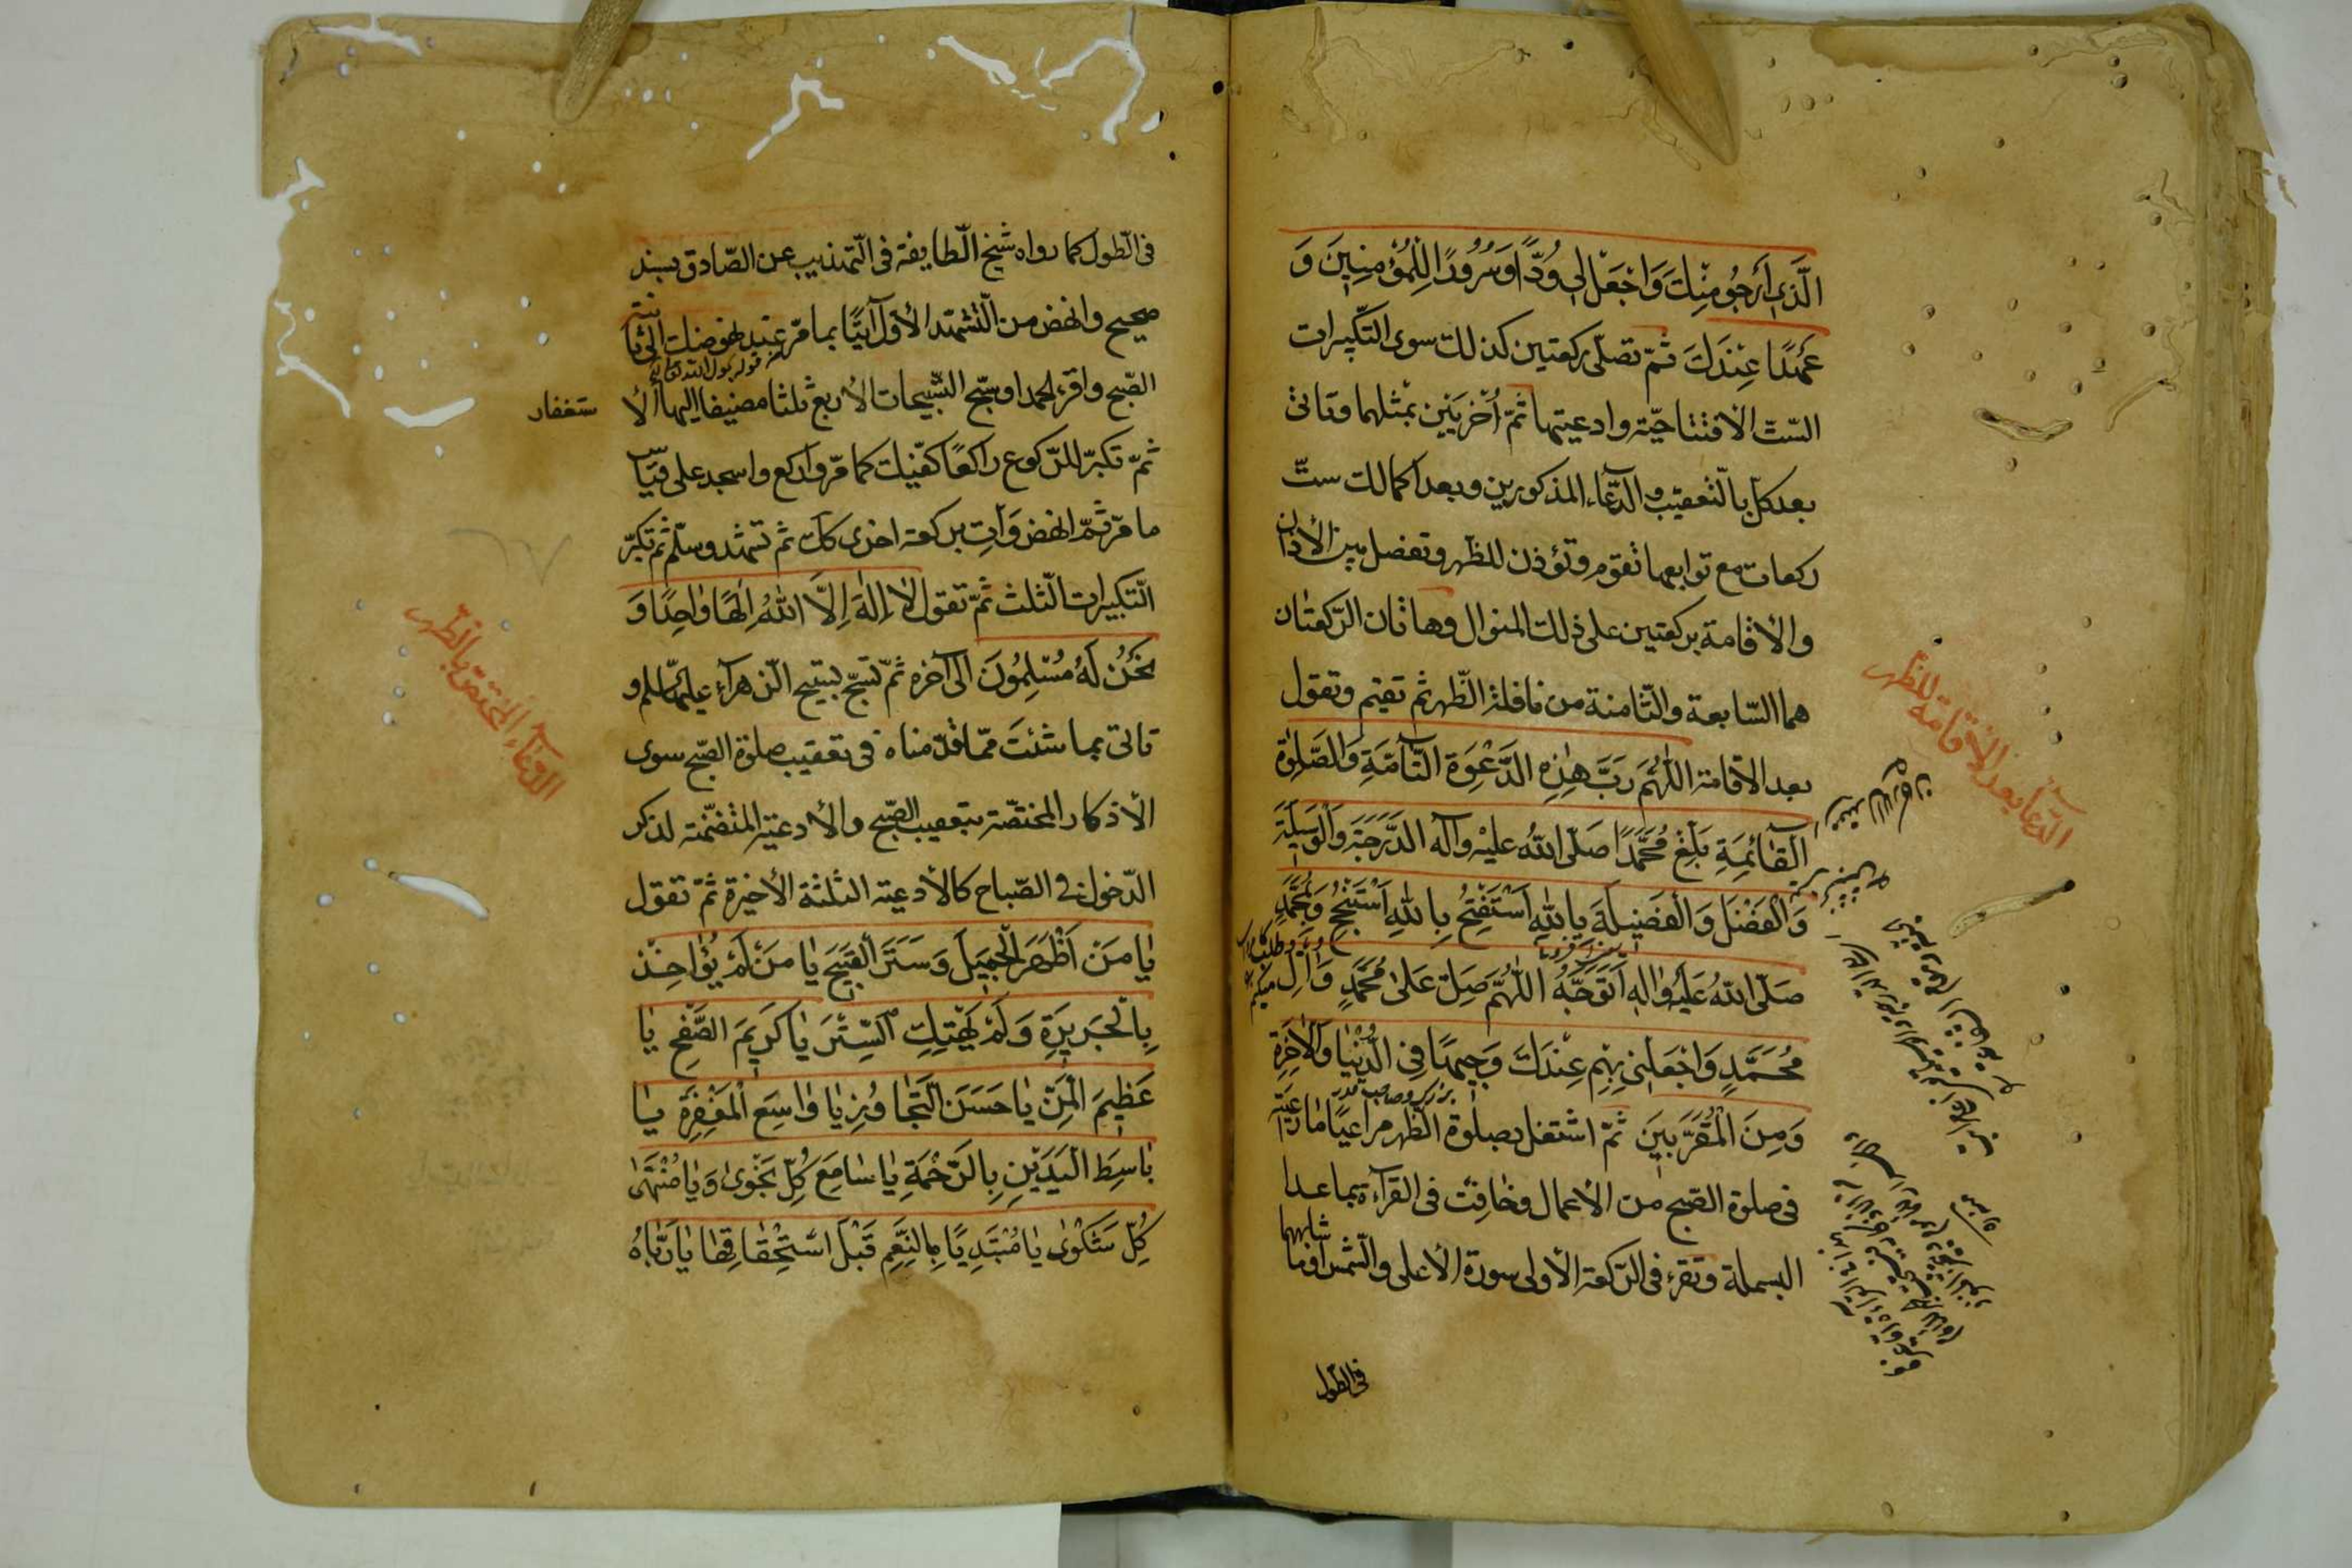 الَّذى اَرجُو مِنكَ وَاجْعَلْ لى وُدًّا وَ سُرُورًا لِلْمُؤمِنِينَ وَ
عَهْدًا عِنْدَكَ ثمّ تصلّى ركعتين كذلك سوى التكبيرات
السّتّ الافتتاحيّة وادعيتها ثمّ اُخْرَيَيْن بمثلهما وتاتى
بعد كلّ بالتعقيب والدّعاء المذكورين وبعد اكمالك ستّ
ركعات مع توابعها تقوم وتؤذن للظهر وتفصل بين الأذان
والاقامة بركعتين على ذلك المنوال وهاتان الركعتان
هما السّابعة والثّامنة من نافلة الظّهر ثم تقيم وتقول
بعد الاقامة اللّهُمَّ رَبَّ هٰذِهِ الدَّعْوَةِ التّآمَّةِ وَالصَّلوٰةِ
القٰائِمَةِ بَلِّغْ مُحَمَّدًا صَلّى اللهُ عليْهِ وَآله الدَّرَجَةَ وَالْوَسِيلَةَ
وَالْفَضْلَ وَالْفَضِيلَةَ بِاللهِ اَسْتَفْتِحُ بِاللهِ اَسْتَنْجِحُ وَبِمُحَمَّدٍ
صَلّى اللهُ عَلَيْهِ وَالِهِ اَتَوَجَّهُ اللّٰهُمَّ صَلِّ عَلىٰ مُحَمَّدٍ وَالِ
مُحَمَّدٍ وَاجْعَلْنى بِهِمْ عِنْدَكَ وَجِيهًا فِى الدُّنْيٰا وَالاٰخِرَةِ
وَمِنَ الْمُقَرَّبينَ ثمّ اشتغل بصلوة الظهر مراعيًا ما راعيته
فى صلوة الصّبح من الأعمال وخافِت فى القرآءة بما عدا
البسملة وتقرء فى الرّكعة الأولى سورة الأعلى والشّمس او ما شابههما
فى الطول
الدّعاء بعد الاقامة للظهر
فى الطّول كما رواه شيخ الطّايفة فى التّهذيب عن الصّادق بسند
صحيح وانهض من التّشهّد الأوّل آتيًا بما مرّ عند نهوضك الى ثانية
الصّبح واقرء الحمد او سبّح التّسبيحات الأربع ثلثا مضيفا اليها الا
ستغفار
ثمّ تكبّر للرّكوع رافعًا كفّيك كما مرّ واركع واسجد على قياس
ما مرّ ثمّ انهض وَآتِ بركعة اخرى كك ثم تشهد وسلّم ثم تكبّر
التّكبيرات الثلث ثمّ تقول لاٰ اِلهَ اِلَّا اللهُ اِلٰهًا وٰاحِدًا وَ
نَحْنُ لَهُ مُسْلِمُونَ الى آخره ثمّ تسبّح تسبيح الزهرآء عليها السلم و
تاتى بما شئتَ ممّا قدّمناه فى تعقيب صلوة الصّبح سوى
الأذكار المختصّة بتعقيب الصّبح والأدعية المتضمّنة لذكر
الدّخول فى الصّباح كالأدعية الثلثة الأخيرة ثمّ تقول
يٰا مَنْ اَظْهَرَ الْجَمِيلَ وَسَتَرَ الْقَبِيحَ يٰا مَنْ لَمْ يُؤٰاخِذْ
بِالْجَرِيرَةِ وَلَمْ يَهْتِكِ السِّتْرَ يٰا كَرِيمَ الصَّفْحِ يٰا
عَظِيمَ الْمَنِّ يٰا حَسَنَ التَّجٰاوُزِ يٰا وٰاسِعَ الْمَغْفِرَةِ يٰا
بٰاسِطَ الْيَدَيْنِ بِالرَّحْمَةِ يٰا سٰامِعَ كُلِّ نَجْوىٰ وَيٰا مُنْتَهىٰ
كُلِّ شَكْوىٰ يٰا مُبْتَدِيًا بِالنِّعَمِ قَبْلَ اسْتِحْقٰاقِهٰا يٰا رَبّٰاهُ
الدّعاء المختصّ بالظهر